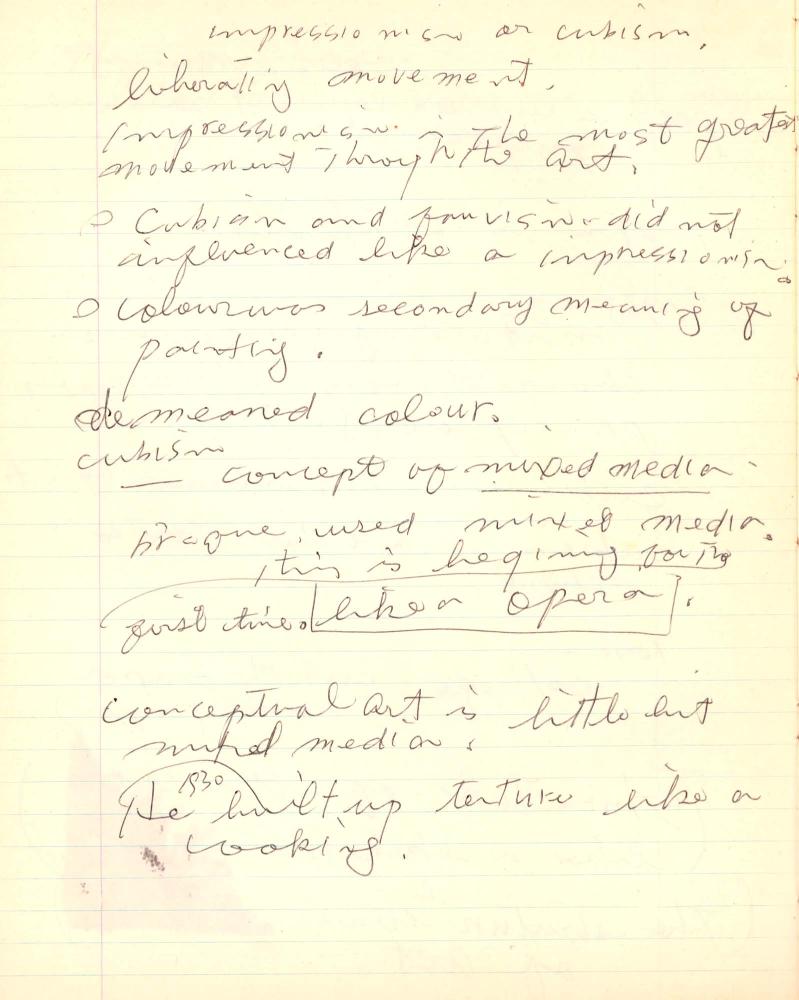 impressionism or cubism.
liberating movement.
Impressionism is the most greatest
movement through the art.
Cubism and fauvism did not
influenced like a impressionism.
Colour was secondary meaning of
painting.
demeaned colour.
cubism
— concept of mixed media
Braque, used mixed media.
this is begining for the
first time. like a opera.
conceptual art is little bit
mixed media.
1930
He built up texture like a
cooking.